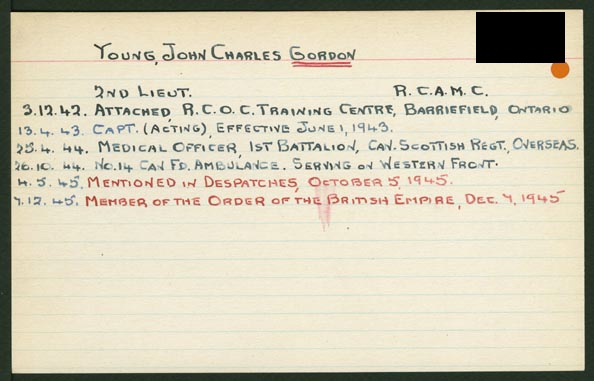 YOUNG, JOHN CHARLES GORDON
2ND LIEUT. R.C.A.M.C.
3.12.42. ATTACHED, R.C.O.C. TRAINING CENTRE, BARRIEFIELD, ONTARIO
13.4.43. CAPT. (ACTING), EFFECTIVE JUNE 1, 1943.
25.4.44. MEDICAL OFFICER, 1ST BATTALION, CAN. SCOTTISH REGT., OVERSEAS.
26.10.44. NO.14 CAN FD. AMBULANCE. SERVING ON WESTERN FRONT.
4.5.45. MENTIONED IN DESPATCHES, OCTOBER 5, 1945.
7.12.45. MEMBER OF THE ORDER OF THE BRITISH EMPIRE, DEC. 7, 1945